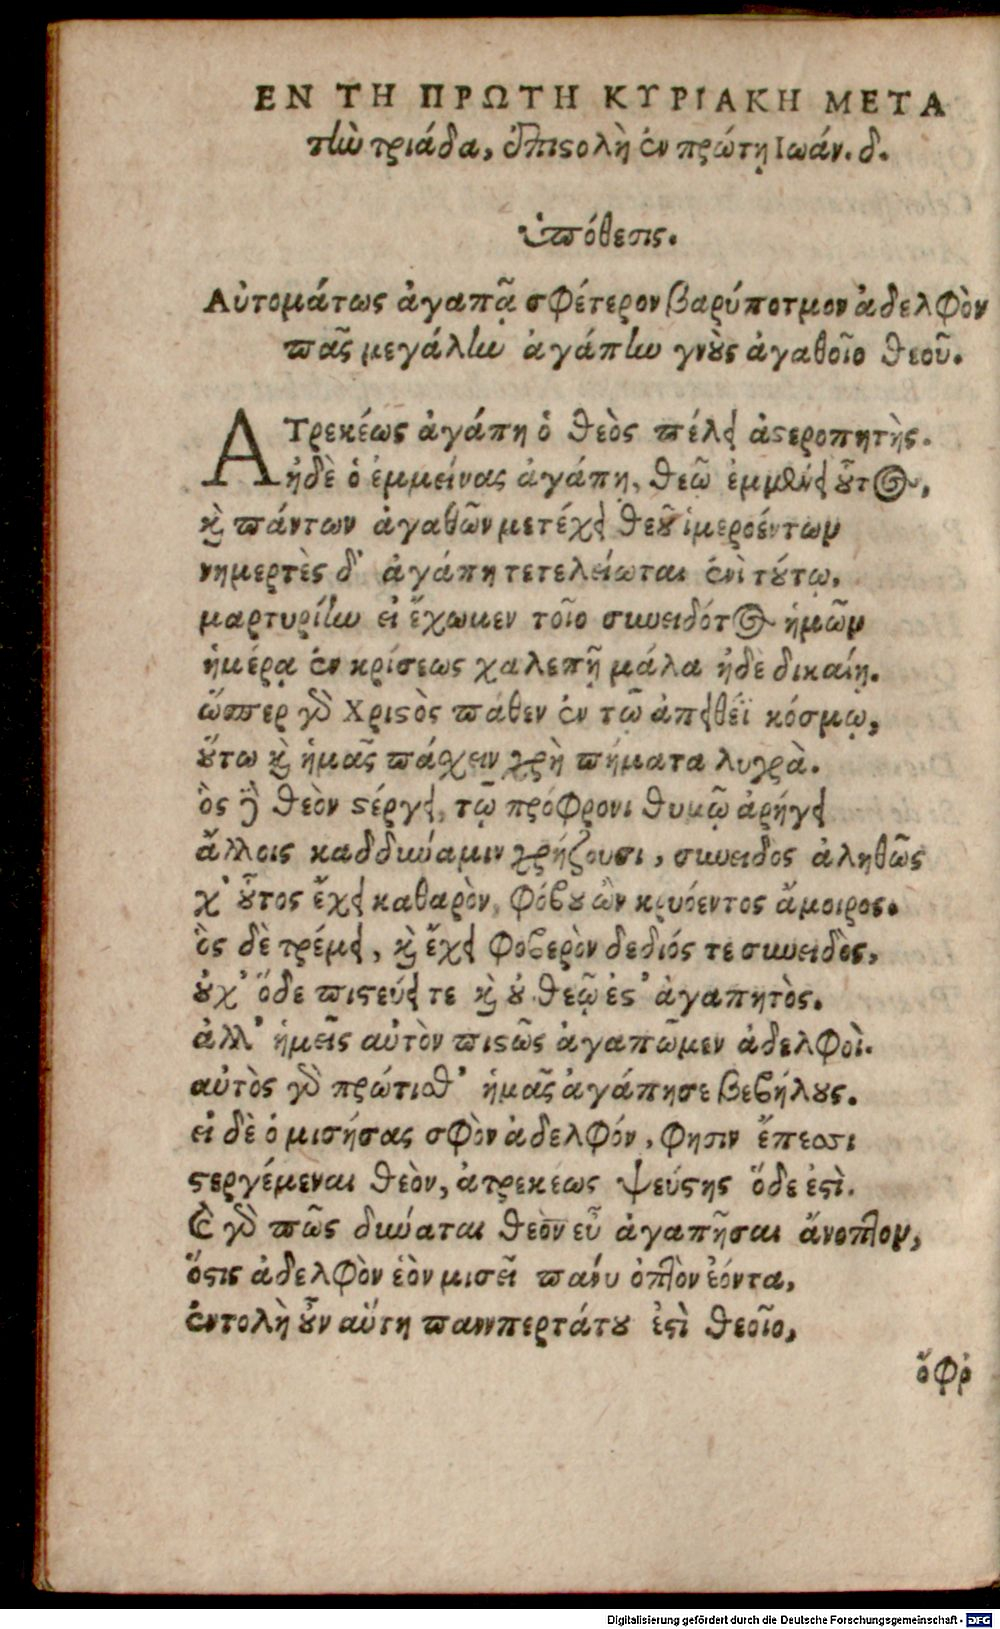 ΕΝ ΤΗ ΠΡΩΤΗ ΚΥΡΙΑΚΗ ΜΕΤΑ
τὴν τριάδα, ἐπιςολὴ ἐν πρώτῃ Ιωάν. δ.
ὑπόθεσις.
Αὐτομάτως ἀγαπᾷ σφέτερον βαρύποτμον ἀδελφὸν
πᾶς μεγάλην ἀγάπην γνοὺς ἀγαθοῖο θεοῦ.
ΑΤρεκέως ἀγάπη ὁ θεὸς πέλει ἀςεροπητὴς.
ἠδὲ ὁ ἐμμείνας ἀγάπῃ, θεῷ ἐμμένει οὗτος,
καὶ πάντων ἀγαθῶν μετέχει θεοῦ ἱμεροέντων
νημερτὲς δ' ἀγάπη τετελείωται ἐνὶ τούτῳ,
μαρτυρίην εἰ ἔχωμεν τοῖο συνειδότος ἡμῶν
ἡμέρᾳ ἐν κρίσεως χαλεπῇ μάλα ἠδὲ δικαίῃ.
ὥσπερ γὰρ Χριςὸς πάθεν ἐν τῷ ἀπειθέϊ κόσμῳ,
οὕτω καὶ ἡμᾶς πάσχειν χρὴ πήματα λυγρὰ.
ὃς γὰρ θεὸν ςέργει, τῷ πρόφρονι θυμῷ ἀρήγει
ἄλλοις καδδύναμιν χρῄζουσι, συνειδος ἀληθῶς
χ' οὗτος ἔχει καθαρὸν, φόβου ὢν κρυόεντος ἄμοιρος.
ὃς δὲ τρέμει, καὶ ἔχει φοβερὸν δεδιός τε συνειδὲς,
οὐχ' ὅδε πιςεύει τε καὶ οὐ θεῷ ἐς' ἀγαπητὸς.
ἀλλ' ἡμεῖς αὐτὸν πιςῶς ἀγαπῶμεν ἀδελφοὶ.
αὐτὸς γὰρ πρώτισθ' ἡμᾶς ἀγάπησε βεβήλους.
εἰ δὲ ὁ μισήσας σφὸν ἀδελφόν, φησιν ἔπεσσι
ςεργέμεναι θεὸν, ἀτρεκέως ψεύςης ὅδε ἐςὶ.
Εἰ γὰρ πῶς δύναται θεὸν εὖ ἀγαπῆσαι ἄνοπλον,
ὅςις ἀδελφὸν ἑὸν μισεῖ πάνυ ὀπλὸν ἐόντα,
ἐντολὴ οὖν αὕτη πανυπερτάτου ἐςὶ θεοῖο,
ὄφρ
Digitalisierung gefördert durch die Deutsche Forschungsgemeinschaft - DFG